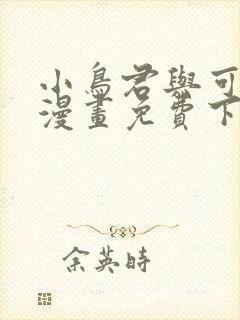 小鳥君與可
漫畫免費下
余英時